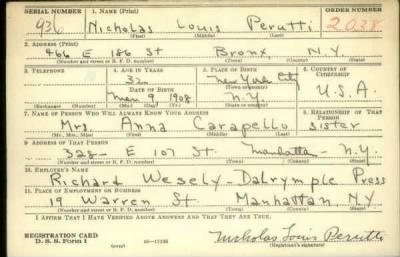 SERIAL NUMBER 1. NAME (Print) ORDER NUMBER
936 Nicholas Louis Perutti 2038
(First) (Middle) (Last)
2. ADDRESS (Print)
466 E 186 St Bronx, N.Y.
(Number and street or R. F. D. number) (Town) (County) (State)
3. TELEPHONE 4. AGE IN YEARS 5. PLACE OF BIRTH 6. COUNTRY OF CITIZENSHIP
32 New York City
DATE OF BIRTH (Town or county)
Mar 9 1908 N.Y. U.S.A.
(Exchange) (No.) (Mo.) (Day) (Yr.) (State or country)
7. NAME OF PERSON WHO WILL ALWAYS KNOW YOUR ADDRESS 8. RELATIONSHIP OF THAT PERSON
Mrs. Anna Carapello sister
(Mr., Mrs., Miss) (First) (Middle) (Last)
9. ADDRESS OF THAT PERSON
328 - E 107 St N.Y.
(Number and street or R. F. D. number) (Town) (County) (State)
10. EMPLOYER'S NAME
Richard Wesely - Dalrymple Press
11. PLACE OF EMPLOYMENT OR BUSINESS
19 Warren St. Manhattan, N.Y
(Number and street or R. F. D. number) (Town) (County) (State)
I AFFIRM THAT I HAVE VERIFIED ABOVE ANSWERS AND THAT THEY ARE TRUE.
REGISTRATION CARD
D. S. S. Form 1 (over) 16-17105 Nicholas Louis Perutti
(Registrant's signature)